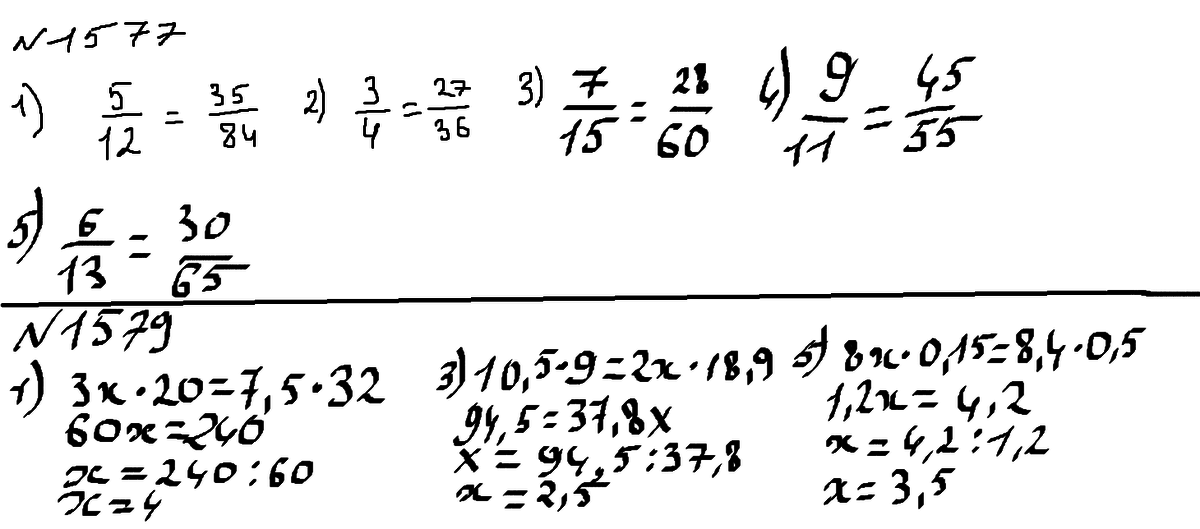 N1577
1) 5/12 = 35/84 2) 3/4 = 27/36 3) 7/15 = 28/60 4) 9/11 = 45/55
5) 6/13 = 30/65
N1579
1) 3x·20=7,5·32
60x=240
x=240:60
x=4
3) 10,5·9=2x·18,9
94,5=37,8x
x=94,5:37,8
x=2,5
5) 8x·0,15=8,4·0,5
1,2x=4,2
x=4,2:1,2
x=3,5